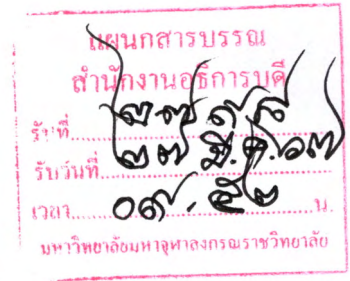 แผนกสารบรรณ
สำนักงานอธิการบดี
รับที่
รับวันที่ ๒๗ มี.ค. ๖๗
เวลา ๐๙.๕๒ น.
มหาวิทยาลัยมหาจุฬาลงกรณราชวิทยาลัย